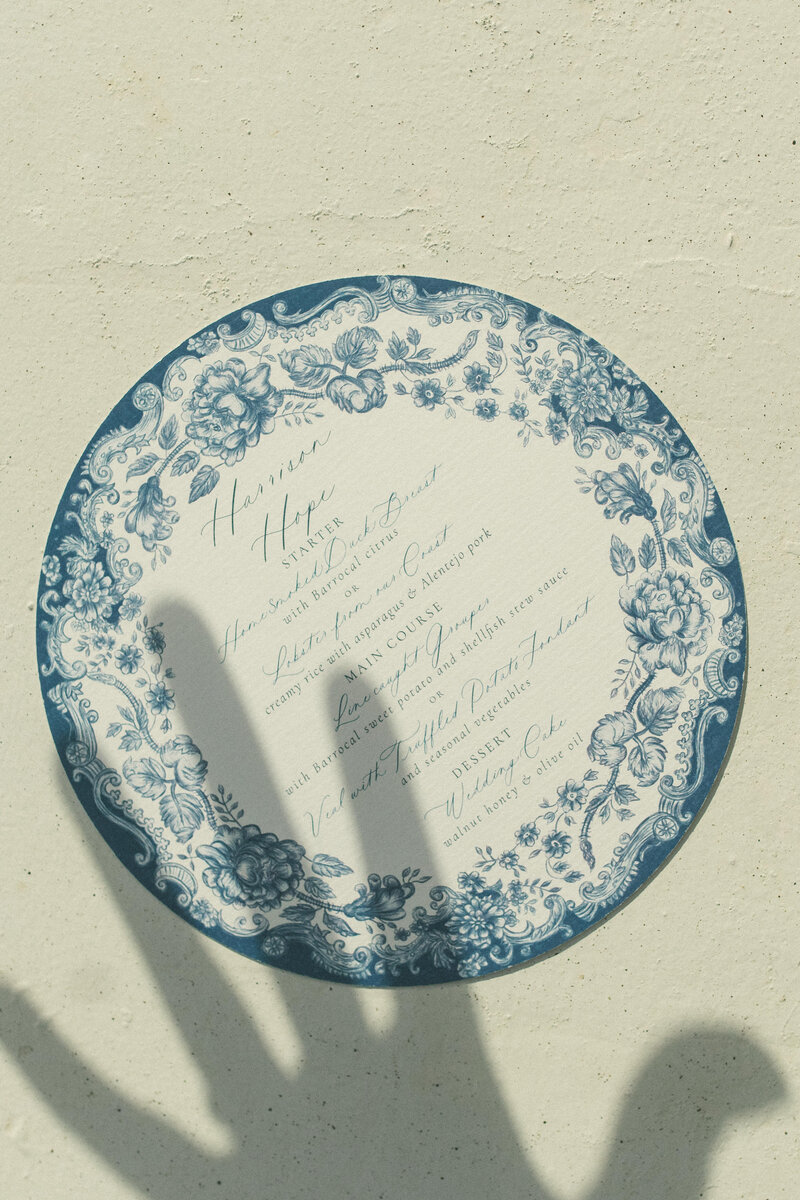 Harrison
Hope
STARTER
Home Smoked Duck Breast
with Barrocal citrus
OR
Lobster from our Coast
creamy rice with asparagus & Alentejo pork
MAIN COURSE
Line caught Grouper
with Barrocal sweet potato and shellfish stew sauce
OR
Veal with Truffled Potato Fondant
and seasonal vegetables
DESSERT
Wedding Cake
walnut honey & olive oil